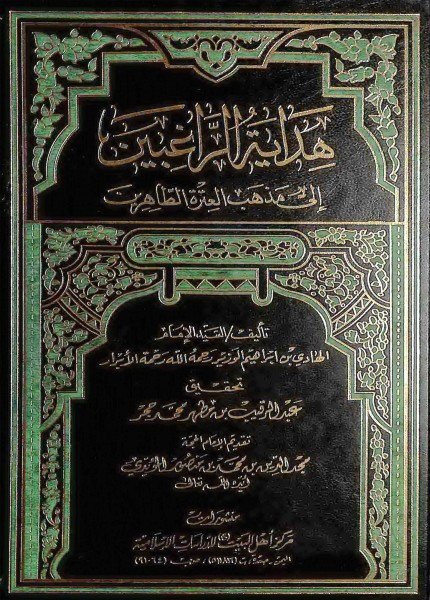 هِدَايَةُ الرَّاغِبِينَ
إلى مَذهَب العِترَة الطَّاهِرين
تأليف/السيد الإمام
الهادي بن ابراهيم الوزير رحمه الله رحمة الأبرار
تحقيق
عبد الرقيب بن مطهر محمد حجر
تقديم الإمام الحجة
مجد الدين بن محمد بن منصور المؤيدي
أيده الله تعالى
منشورات
مركز أهل البيت (ع) للدراسات الإسلامية
اليمن ـ صعدة، ت